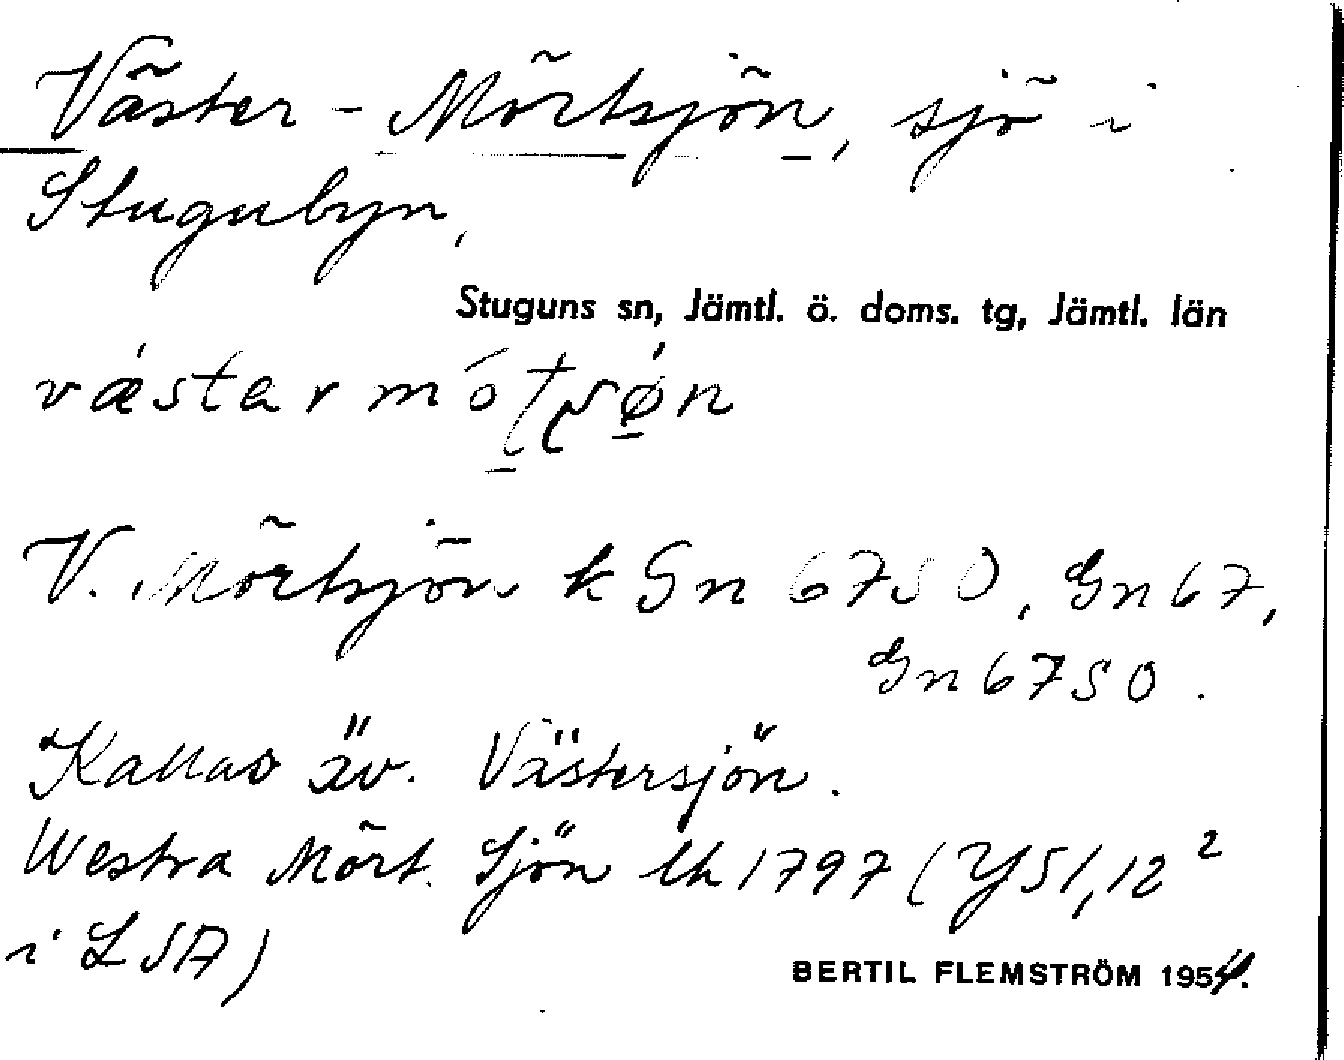 Väster-Mörtsjön, sjö i
Stugubyn,
Stuguns sn, Jämtl. ö. doms. tg, Jämtl. län
V. Mörtsjön k Gn 67SO, Gn67,
Gn67SO.
Kallas äv. Västersjön.
Westra Mört. Sjön lk 1797 (YS1,12²
i LSA)
BERTIL FLEMSTRÖM 1954.